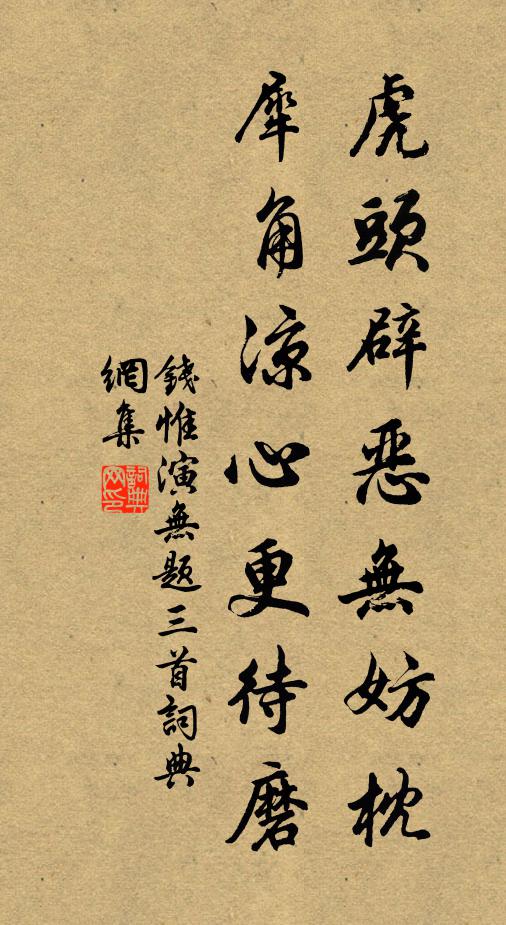 虎頭辟惡無妨枕
犀角涼心更待磨
錢惟演無題三首詞典
網集
詞典網印